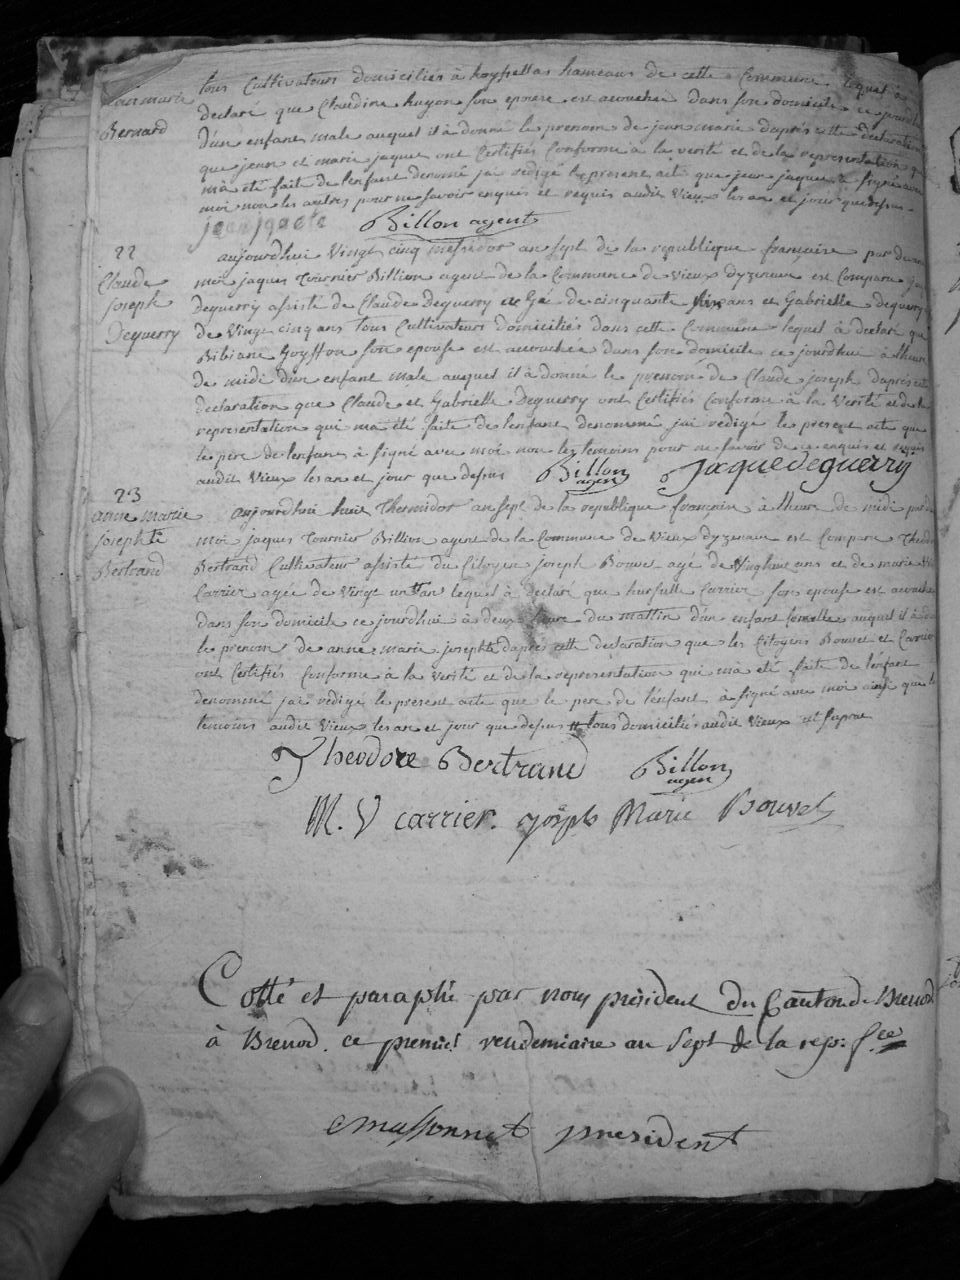 tous Cultivateurs domiciliés à hameaux de cette Commune, lequel à
Jean marie
Bernard
declaré que Claudine hugon son epouse est acouchée dans son domicile ce jourdhui
d'un enfant male auquel il à donné le prenom de jean marie daprés cette declaration
que jean et marie jaquet ont Certifiés Conforme à la verité et de la representation qui
ma été fait de lenfant denomé jai redigé le present acte que jean jaquet à signé avec
moi non les autres pour ne savoir enquis et requis audit Vieux les an et jour que desus
jean jquete Billon agent
22
Claude
joseph
Deguerry
aujourdhui Vingt cinq messidor an sept de la republique francaise par devant
moi jaques Tournier Billion agent de la Commune de Vieux dyzenave est Comparu
Deguerry assisté de Claude Deguerry de cinquante ans et Gabrielle deguerry
de Vingt cinq ans tous Cultivateurs domiciliés dans cette Commune lequel à declaré que
Bibiane Goyffon son epouse est acouchée dans son domicile ce jourdhui à lheure
de midi d'un enfant male auquel il à donné le prenom de Claude joseph daprés cette
declaration que Claude et Gabrielle Deguerry ont Certifiés Conforme à la Verité et de la
representation qui ma été faite de lenfant denommé jai redigé le present acte que
le pere de lenfant à signé avec moi non les temoins pour ne savoir de ce enquis et requis
audit Vieux les an et jour que desus Billon agent jaque deguerry
23
anne marie
josephte
Bertrand
aujourdhui huit Thermidor an sept de la republique francaise à lheure de midi par devant
moi jaques Tournier Billion agent de la Commune de Vieux dyzenave est Compare Theodore
Bertrand Cultivateur assisté du Citoyen joseph Bouvet agé de Vinghuit ans et de marie
Carrier agée de Vingt un ans lequel à declaré que Carrier son epouse est acouchée
dans son domicile ce jourdhui à deux heure du mattin d'un enfant femelle auquel il à donné
le prenom de anne marie josephte daprés cette declaration que les Citoyens Bouvet et Carrier
ont Certifiés Conforme à la verité et de la representation qui mà été faite de lenfant
denommé jai redigé le present acte que le pere de lenfant à signé avec moi ainsi que les
temoins audit Vieux les an et jour que desus # tous domiciliés audit Vieux
Theodore Bertrand Billon agent
M. V carrier. joseph Marie Bouvet
Cotté et paraphé par nous président du Canton de Brenod
à Brenod. ce premier vendemiaire an Sept de la rep: fce
Massonnet président